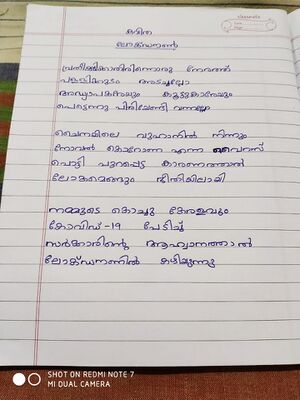 classmate
Date
Page
കവിത
ലോക്ഡൗൺ
പ്രതീക്ഷിക്കാതിരിന്നൊരു നേരത്ത്
പള്ളിക്കൂടം അടച്ചല്ലോ
അദ്ധ്യാപകരേയും കൂട്ടുകാരേയും
പെട്ടെന്നു പിരിയേണ്ടി വന്നല്ലോ
ചൈനയിലെ വുഹാനിൽ നിന്നും
നോവൽ കൊറോണ എന്ന വൈറസ്
പൊട്ടി പുറപ്പെട്ട കാരണത്താൽ
ലോകമെങ്ങും ഭീതിയിലായി
നമ്മുടെ കൊച്ചു കേരളവും
കോവിഡ് -19 പേടിച്ച്
സർക്കാരിന്റെ ആഹ്വാനത്താൽ
ലോക്ഡൗണിൽ കഴിയുന്നു
SHOT ON REDMI NOTE 7
MI DUAL CAMERA